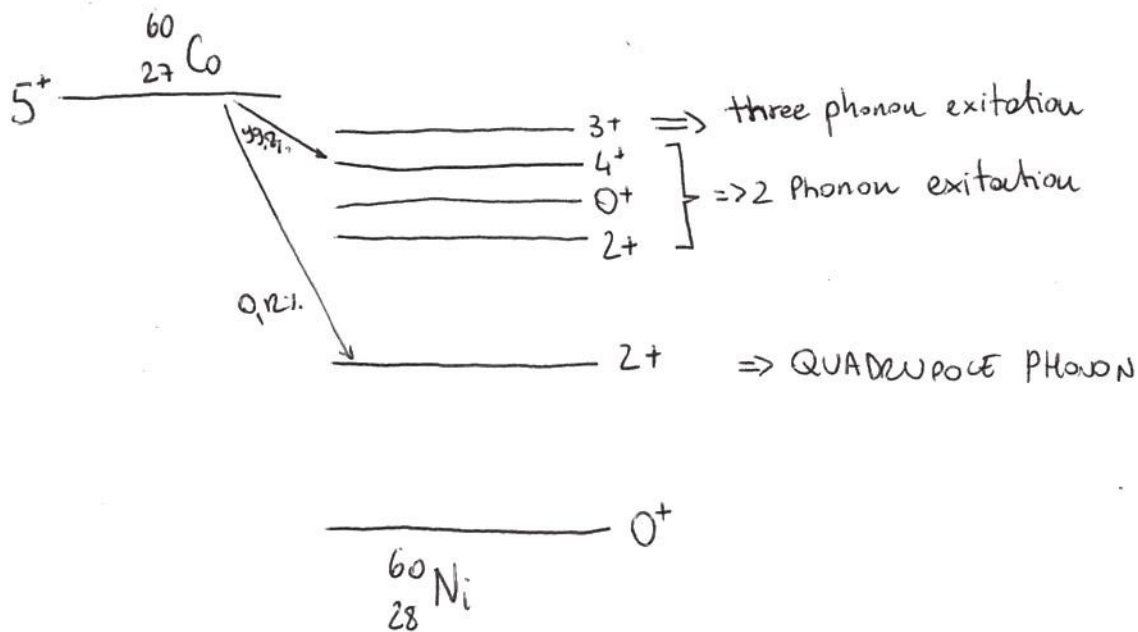 60
27 Co
5+
3+ => three phonon exitation
99,8%
4+
0+ => 2 Phonon exitation
2+
0,12%
2+ => QUADRUPOLE PHONON
0+
60
28 Ni